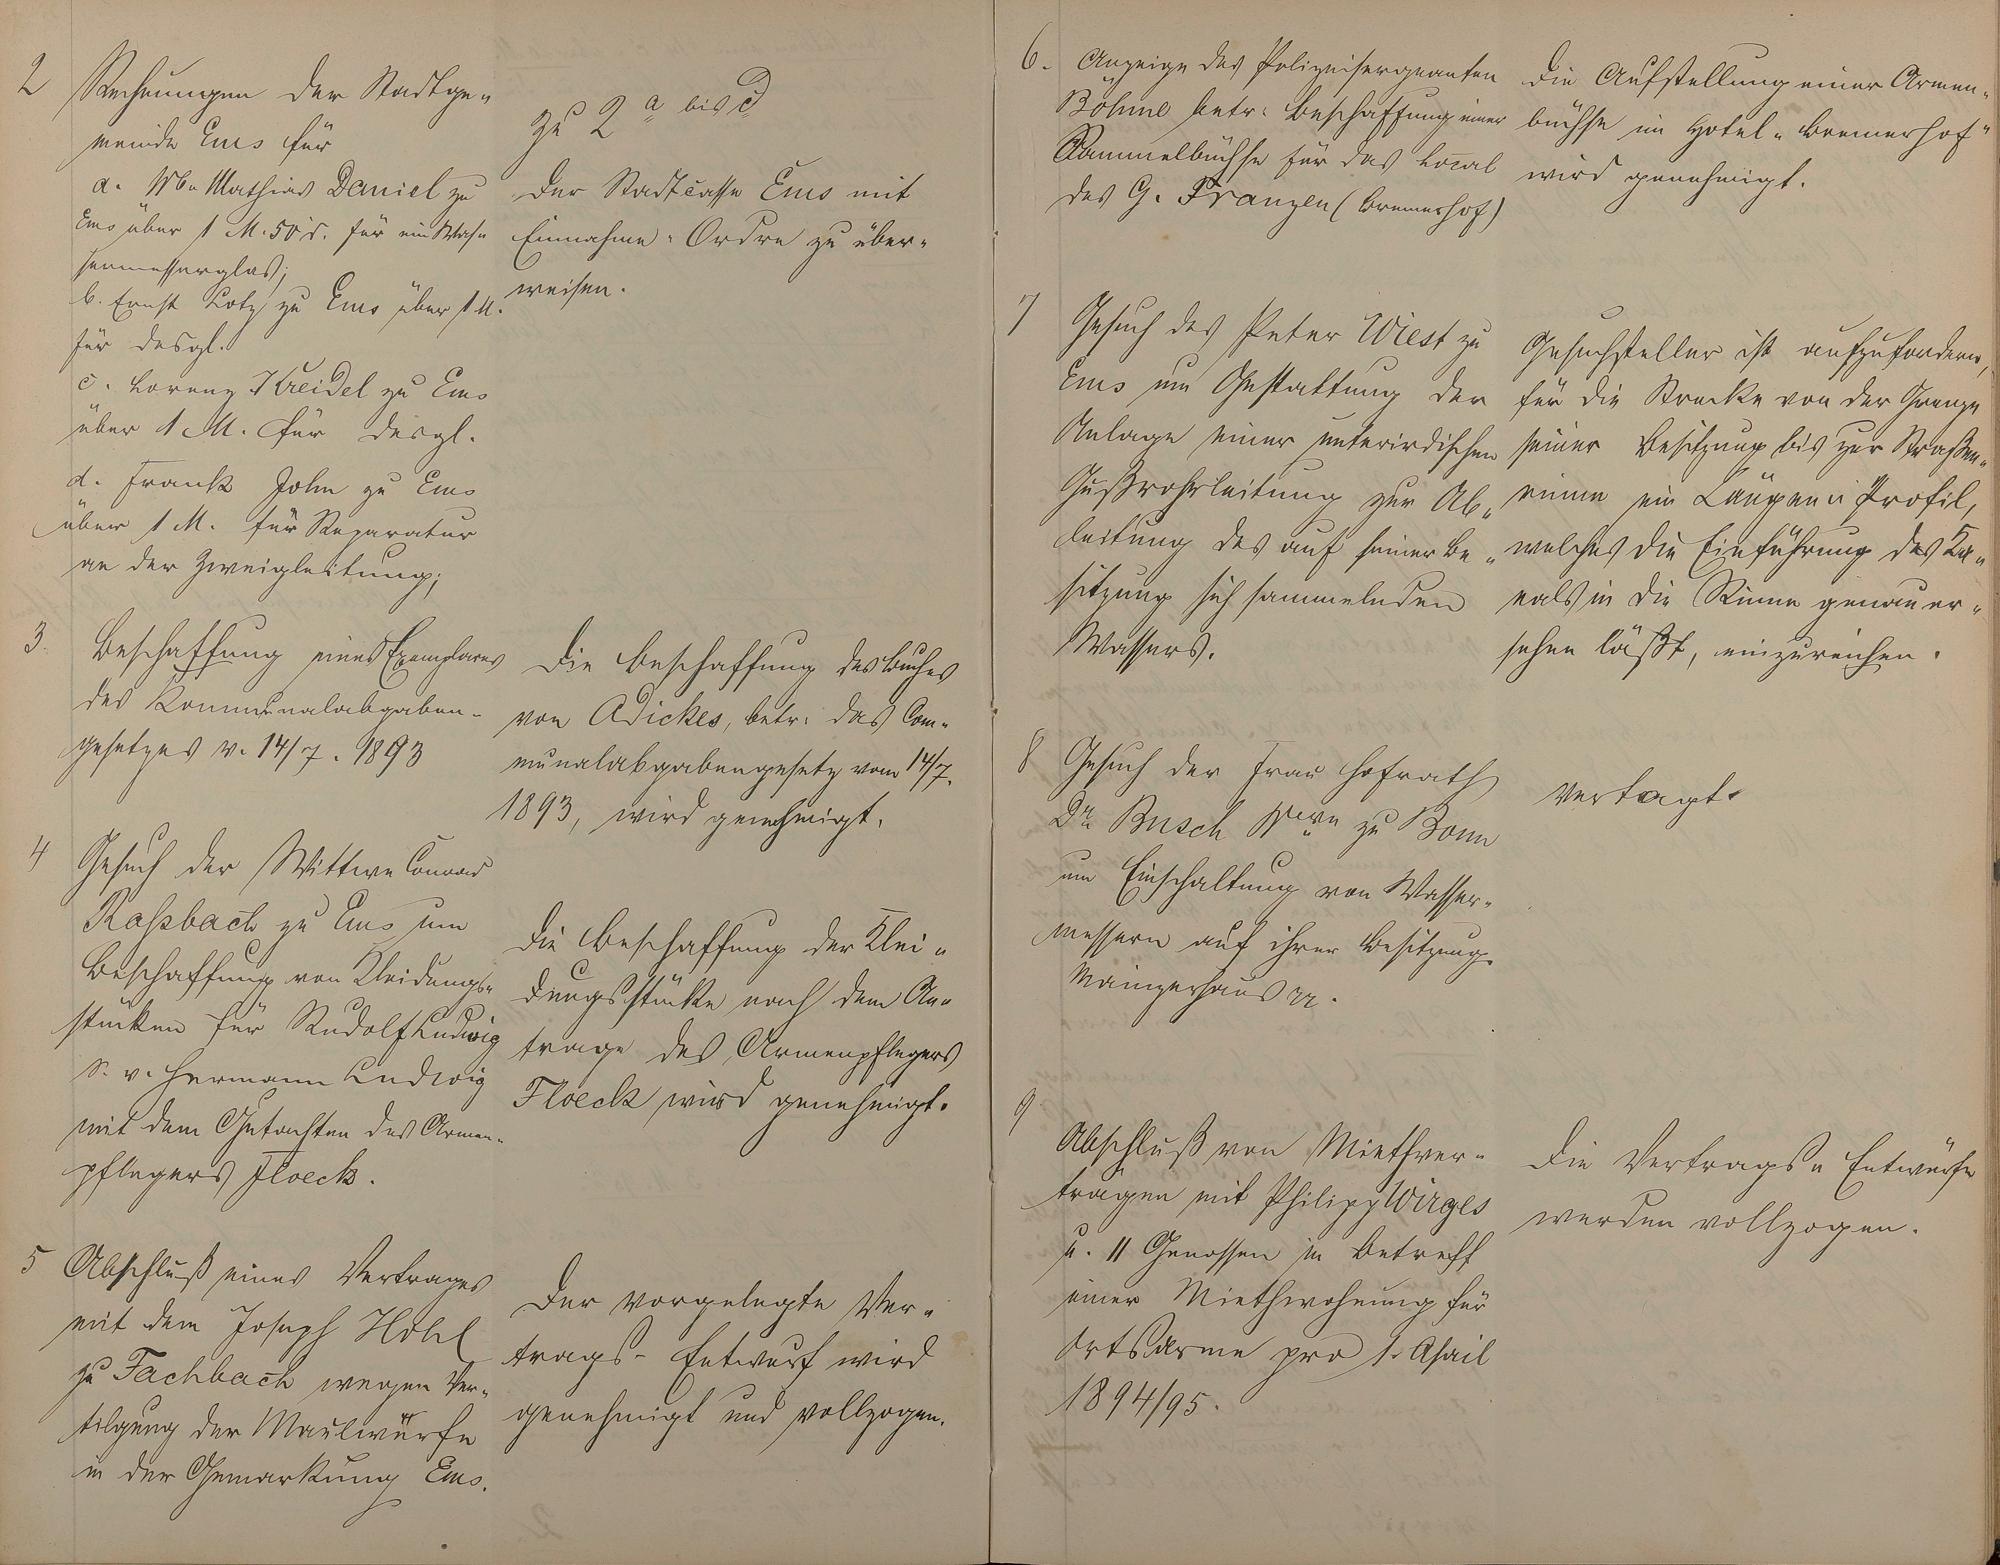 2
Rechnungen der Stadtge-
meinde Ems für
a. Wwe Mathias Daniel zu
Ems über 1 M. 50 d. für ein Was-
sermesserglas;
b. Ernst Lotz zu Ems über 1 M.
für desgl.
c. Lorenz Kreidel zu Ems
über 1 M. für desgl.
d. Frank John zu Ems
über 1 M. für Reparatur
an der Zweigleitung;
zu 2 a bis d
Der Stadtcasse Ems mit
Einnahme-Ordre zu über-
weisen.
3.
Beschaffung eines Exemplares
des Kommunalabgaben-
gesetzes v. 14/7. 1893
Die Beschaffung des Buches
von Adickes, betr. das Com-
munalabgabengesetz vom 14/7.
1893, wird genehmigt.
4
Gesuch der Wittwe Conrad
Roßbach zu Ems um
Beschaffung von Kleidungs-
stücken für Rudolf Ludwig
S. v. Hermann Ludwig
mit dem Gutachten des Armen-
pflegers Floeck.
Die Beschaffung der Klei-
dungsstücke nach dem An-
trage des Armenpflegers
Floeck wird genehmigt.
5
Abschluß eines Vertrages
mit dem Joseph
zu Fachbach wegen Ver-
tilgung der Maulwürfe
in der Gemarkung Ems.
Der vorgelegte Ver-
trags-Entwurf wird
genehmigt und vollzogen.
6.
Anzeige des Polizeisergeanten
Böhme betr. Beschaffung einer
Sammelbüchse für das Local
des G. Franzen (Bremerhof)
Die Aufstellung einer Armen-
büchse im Hotel "Bremerhof"
wird genehmigt.
7
Gesuch des Peter Wiest zu
Ems um Gestattung der
Anlage einer unterirdischen
Gußrohrleitung zur Ab-
leitung des auf seiner Be-
sitzung sich sammelnden
Wassers.
Gesuchsteller ist aufzufordern,
für die Strecke von der Grenze
seiner Besitzung bis zur Straßen-
rinne ein Längen-Profil,
welches die Einführung des Ka-
nals in die Rinne genau er-
sehen läßt, einzureichen.
8
Gesuch der Frau Hofrath
Dr. Busch Wwe zu Bonn
um Einschaltung von Wasser-
messern auf ihrer Besitzung
Mainzerhaus
Vertagt.
9
Abschluß von Miethver-
trägen mit Philipp Wirges
u. 11 Genossen in Betreff
einer Miethwohnung für
Ortsarme pro 1. April
1894/95.
Die Vertrags-Entwürfe
werden vollzogen.